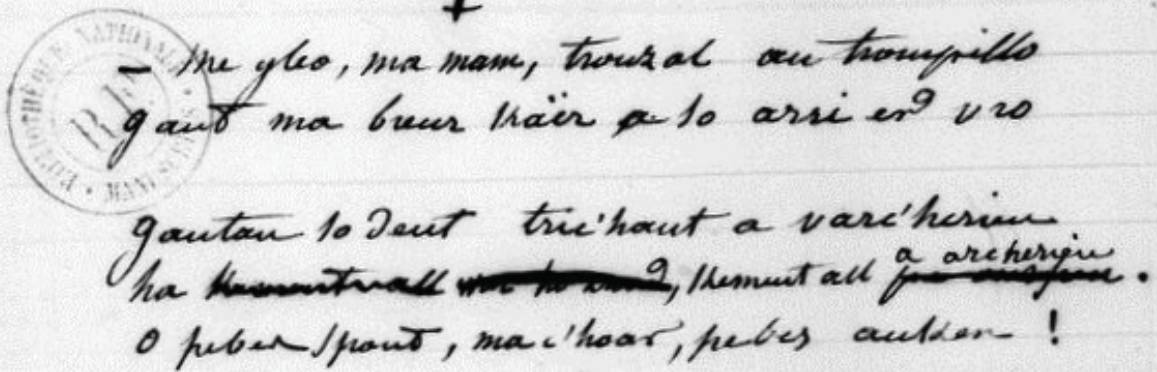 BIBLIOTHÈQUE NATIONALE
R.F.
MANUSCRITS
+
— Me gleo, ma mam, trouzal an trompillo
gant ma breur kaër a so arri er vro
gantan so deut tric'hant a varc'herien
ha kement all a archerien.
O pebes spont, ma c'hoar, pebes anken !